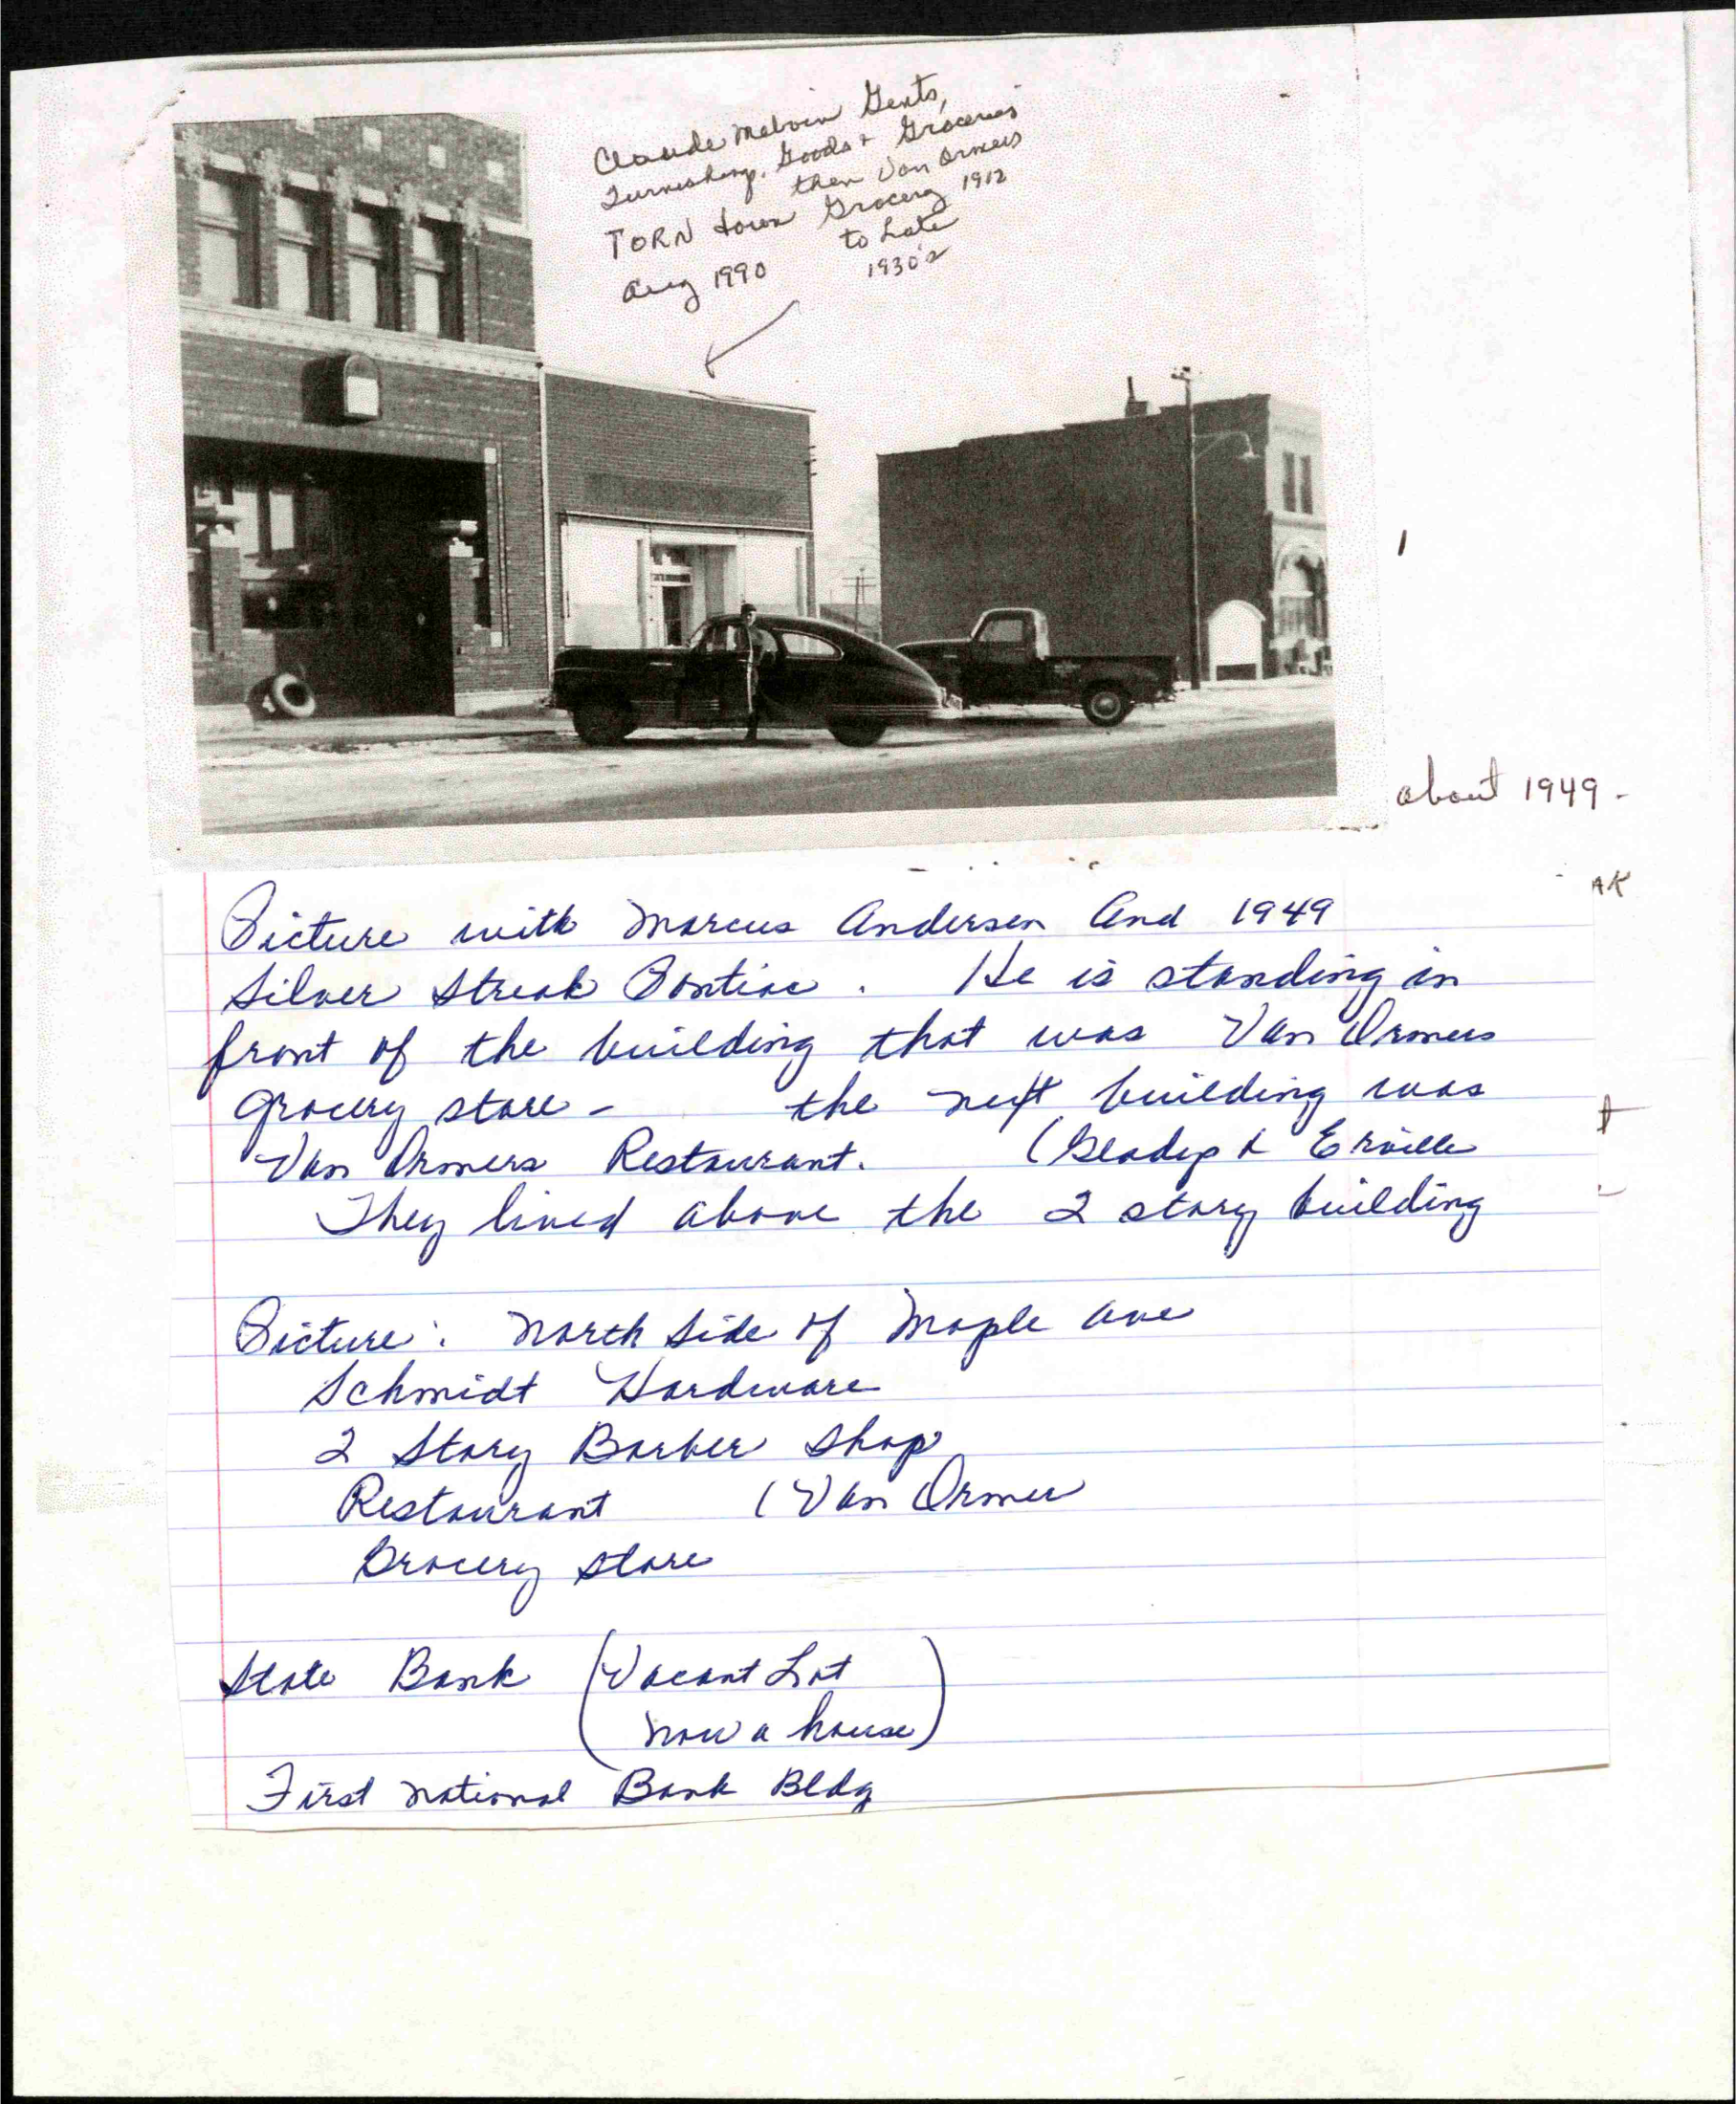 Claude Melvin Gents,
Furnishing. Goods & Groceries
then Van Ormers
TORN down Grocery 1912
to Late
Aug 1990 1930's
about 1949 -
AK
Picture with Marcus Andersen And 1949
Silver Streak Pontiac. He is standing in
front of the building that was Van Ormers
grocery store - the next building was
Van Ormers Restaurant. (Gladys & Erville
They lived above the 2 story building
Picture: North Side of Maple ave
Schmidt Hardware
2 Story Barber Shop
Restaurant (Van Ormer
Grocery store
State Bank (Vacant Lot
now a house)
First National Bank Bldg